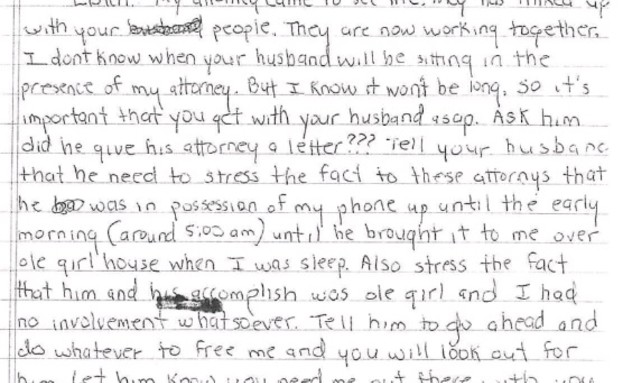 Listen. My attorney came to see me. They has linked up
with your people. They are now working together.
I dont know when your husband will be siting in the
presence of my attorney. But I know it won't be long, so it's
important that you get with your husband asap. Ask him
did he give his attorney a letter??? Tell your husbanc
that he need to stress the fact to these attornys that
he was in possession of my phone up until the early
morning (around 5:00 am) until he brought it to me over
ole girl house when I was sleep. Also stress the fact
that him and his accomplish was ole girl and I had
no involvement whatsoever. Tell him to go ahead and
do whatever to free me and you will look out for
him. Let him know you need me out there with you